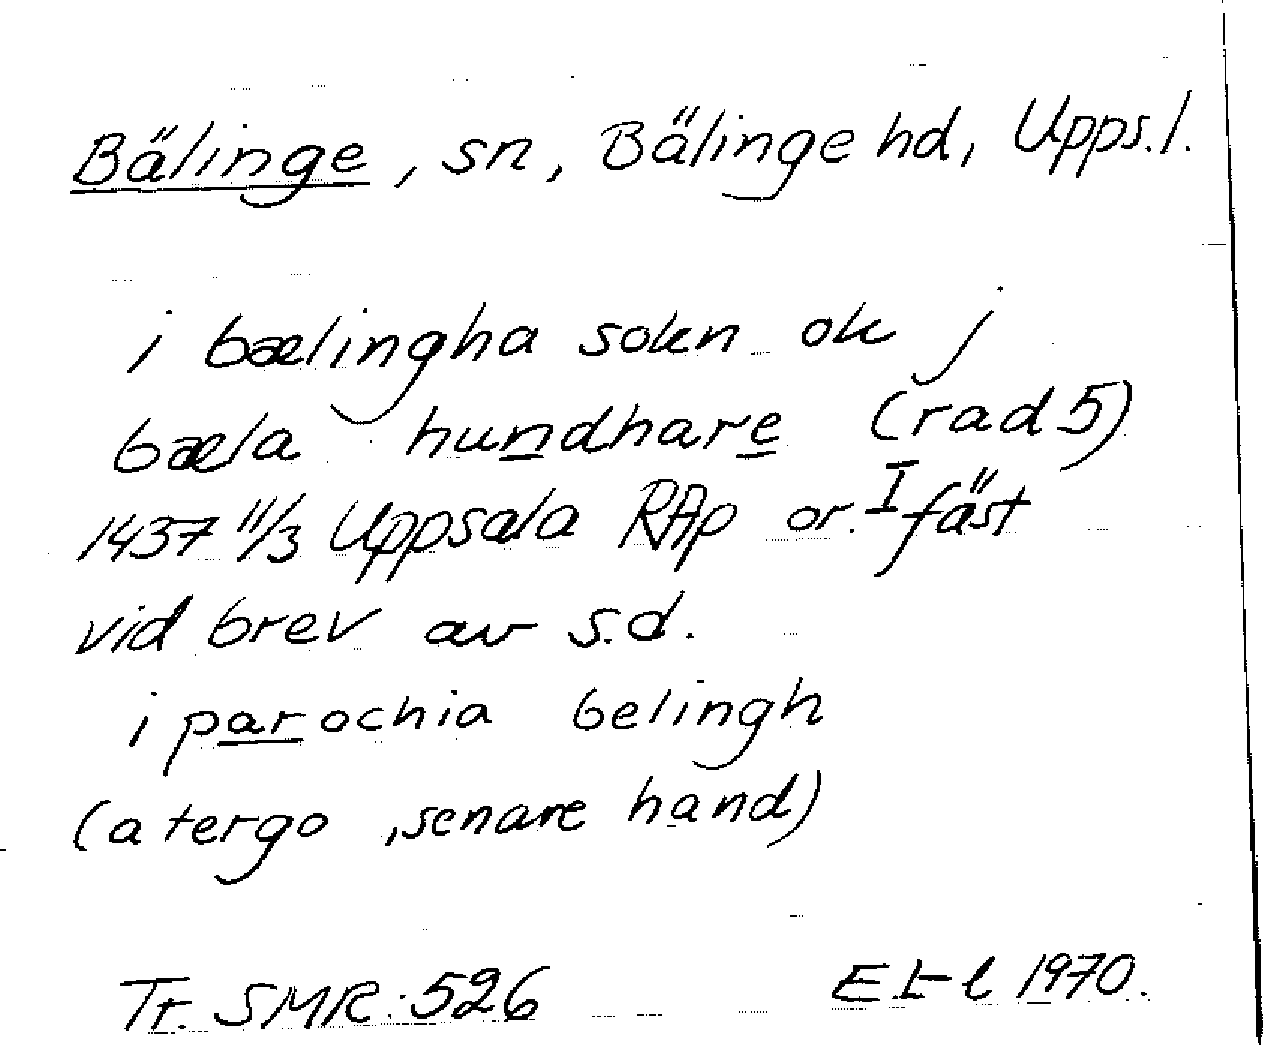 Bälinge, sn, Bälinge hd, Upps. l.
i bælingha sokn ok j
bæla hundhare (rad 5)
1437 11/3 Uppsala RAp or. I fäst
vid brev av s.d.
i parochia belingh
(a tergo, senare hand)
Tr. SMR: 526 1970.